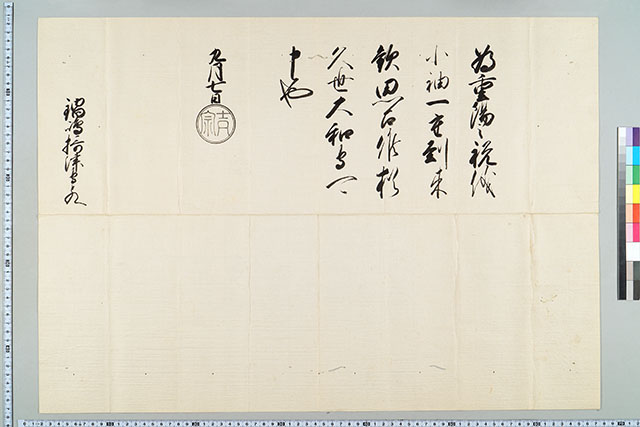 為重陽之祝儀
小袖一重到来
歓思召候猶
久世大和守可
申也
九月七日
吉宗
鍋嶋摂津守殿